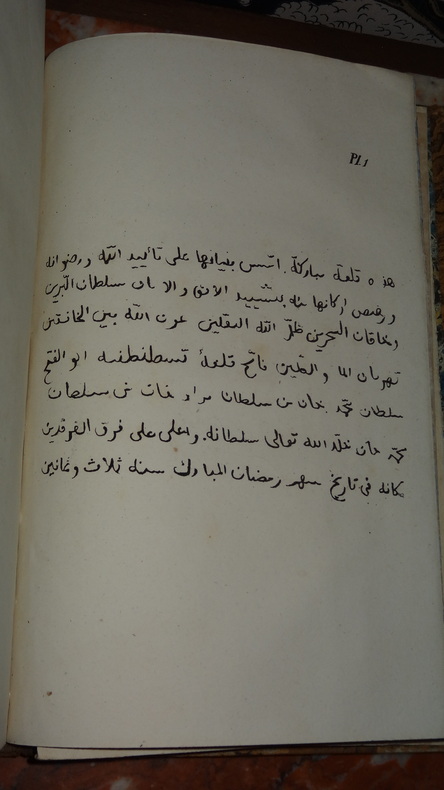 Pl. 1
هذه قلعة مباركة اسس بنيانها على تأييد الله ورضوانه
ورصص اركانها بتشييد الامن والامان سلطان البرين
وخاقان البحرين ظل الله الثقلين عون الله بين الخافقين
قهرمان الما والطين فاتح قلعة قسطنطنيه ابو الفتح
سلطان محمد خان بن سلطان مراد خان بن سلطان
محمد خان خلد الله تعالى سلطانه واعلى على فرق الفرقدين
مكانه في تاريخ شهر رمضان المبارك سنه ثلاث وثمانين